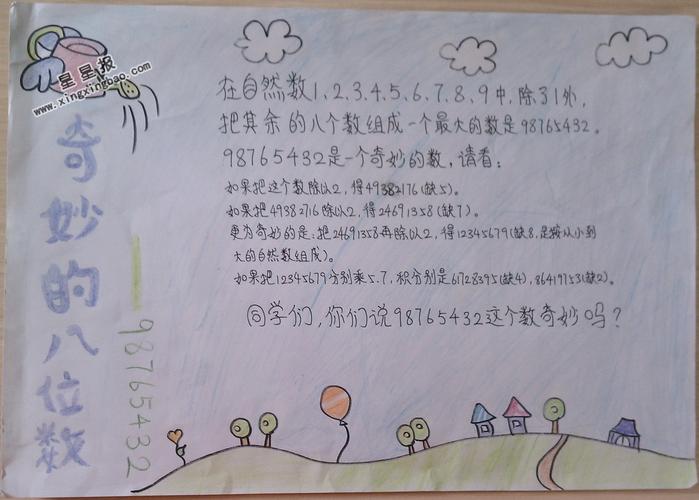 星星报
www.xingxingbao.com
奇妙的八位数
——98765432
在自然数1、2、3、4、5、6、7、8、9中，除了1外，
把其余的八个数组成一个最大的数是98765432。
98765432是一个奇妙的数，请看：
如果把这个数除以2，得49382176(缺5)。
如果把49382716除以2，得24691358(缺7)。
更为奇妙的是：把24691358再除以2，得12345679(缺8，是按从小到
大的自然数组成)。
如果把12345679分别乘5.7，积分别是61728395(缺4)，86419753(缺2)。
同学们，你们说98765432这个数奇妙吗？